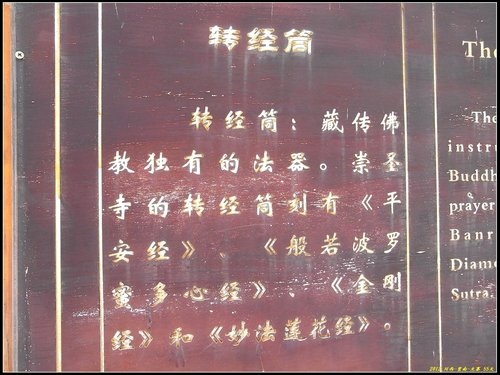 转经筒
转经筒：藏传佛
教独有的法器。崇圣
寺的转经筒刻有《平
安经》、《般若波罗
蜜多心经》、《金刚
经》和《妙法莲花经》。
The
The
instru
Buddh
prayer
Banr
Diamo
Sutra.